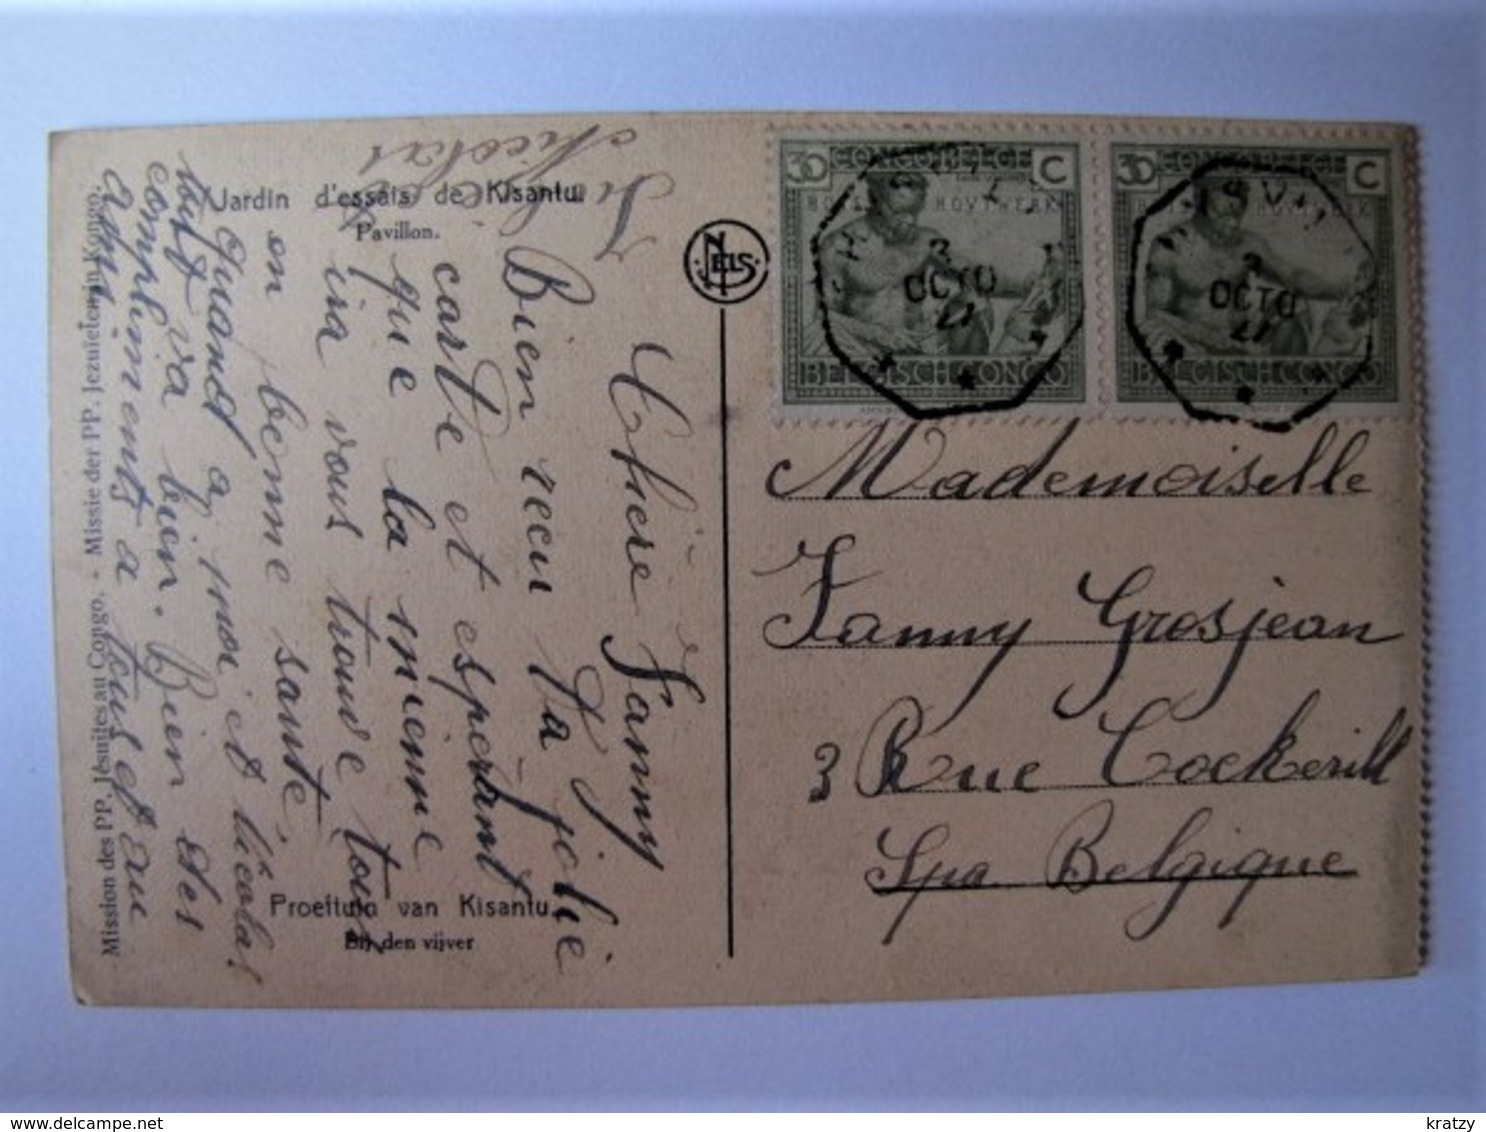 Jardin d'essais de Kisantu.
Pavillon.
NELS
Chère Fanny
Bien recu ta jolie
carte et espérant
que la mienne
ira vous trouve tour
en bonne santé,
Quand a moi et Nicolas
tout va bien. Bien des
compliments a tous et au
Nicolas
Proeftuin van Kisantu.
Bij den vijver
Mission des PP. Jésuites au Congo. - Missie der PP. Jezuieten in Kongo.
30 CONGO BELGE C
HOUTWERK
3
OCTO
BELGISCH CONGO
30 CONGO BELGE C
3
OCTO
BELGISCH CONGO
Mademoiselle
Fanny Grosjean
3 Rue Cockerill
Spa Belgique
delcampe.net
kratzy